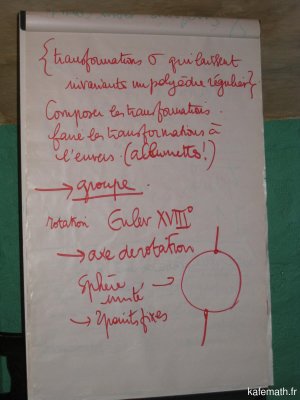 {transformations σ qui laissent
invariants un polyèdre régulier}
Composer les transformations
faire les transformations à
l'envers. (allumettes!)
→ groupe.
rotation Euler XVIII°
→ axe de rotation
Sphère →
unité
→ 2 points fixes
kafemath.fr